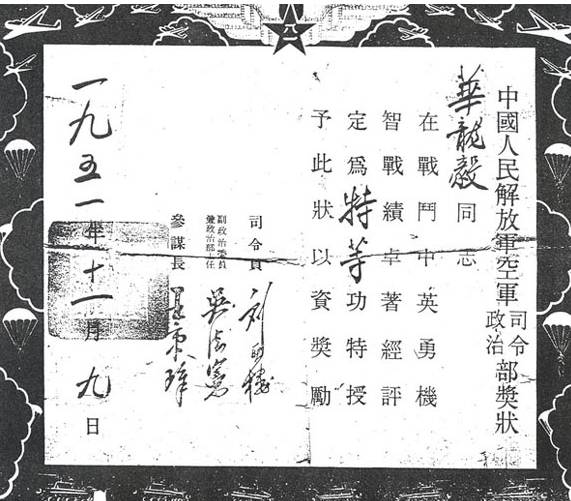 八一
中國人民解放軍空軍司令政治部獎狀
華龍毅同志
在戰鬥中英勇機
智戰績卓著經評
定為特等功特授
予此狀以資獎勵
司令員 刘亞樓
副政治委員
兼政治部主任 吳法憲
參謀長 王秉璋
一九五一年十一月九日